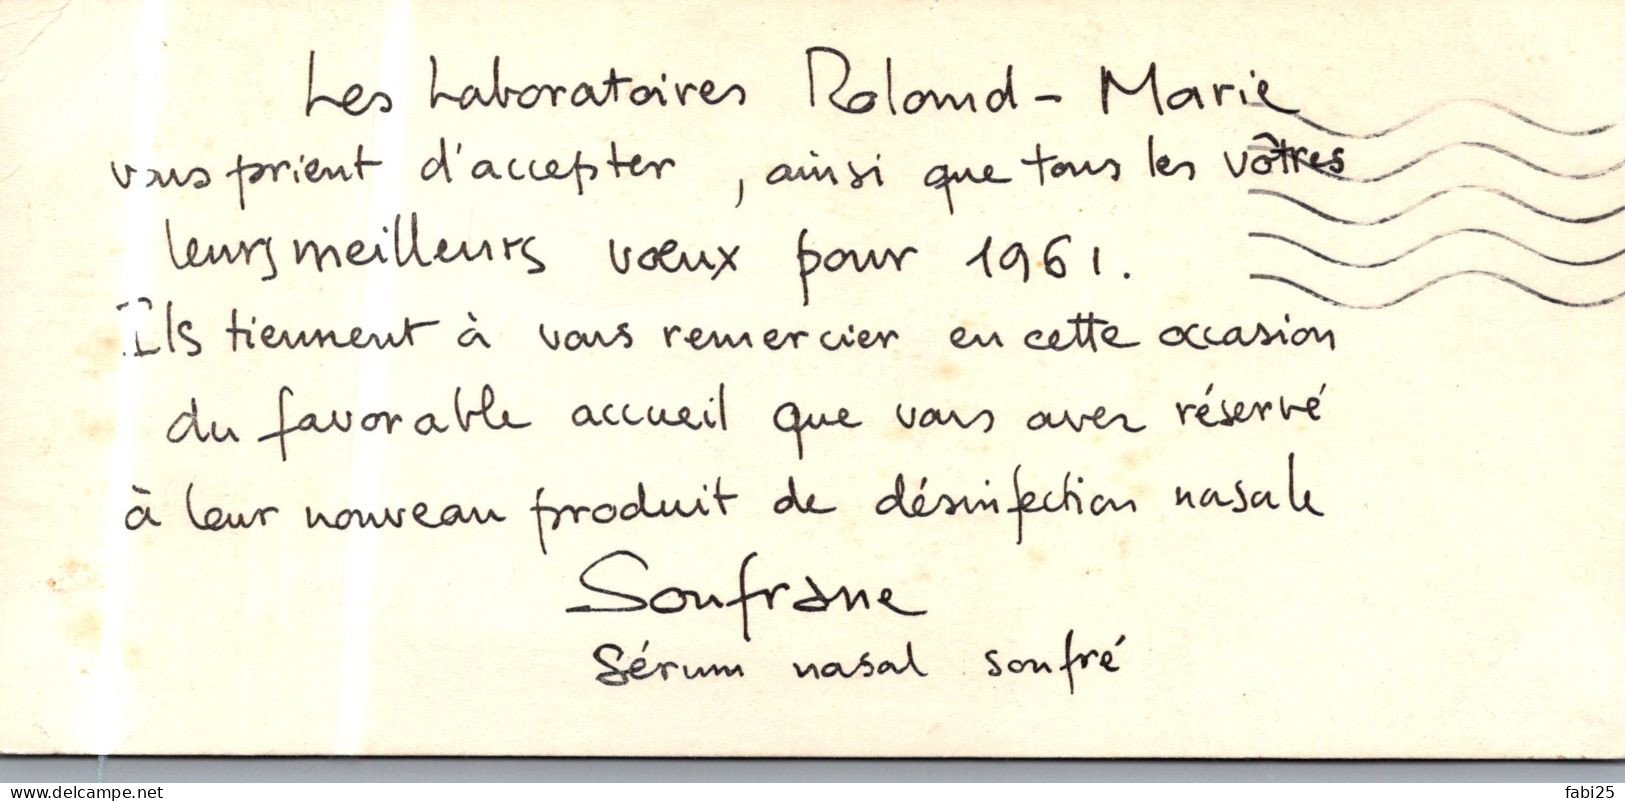 Les Laboratoires Roland-Marie
vous prient d'accepter, ainsi que tous les vôtres
leurs meilleurs vœux pour 1961.
Ils tiennent à vous remercier en cette occasion
du favorable accueil que vous avez réservé
à leur nouveau produit de désinfection nasale
Soufrane
Sérum nasal soufré
www.delcampe.net
fabi25